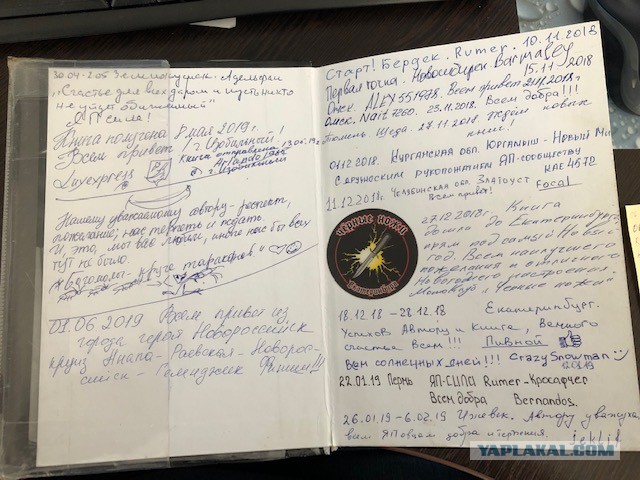 30.04-2.05 Зеленокумск. Адельфан
"Счастье для всех даром и пусть никто
не уйдет обиженный"
ЯП сила!
Книга получена 8 мая 2019 г.
Всем привет г. Изобильный!
Книга отправлена 13.05.19г.
г. Изобильный
Luyexpress
Нашему уважаемому автору - респект,
пожелание; нас терпеть и ждать.
И, это, мог вас людили, иначе нас бы всех
тут не было.
01.06 2019 Всем привет из
города героя Новороссийск
круиз Анапа - Раевская - Новорос-
сийск - Геленджик Финиш!!!
Старт! Бердск. Rumer. 10.11.2018
Первая точка. Новосибирск. Barmaley
15.11-2018
Омск. ALEX551978. Всем привет 21.11.2018г
Омск. Nait7260. 23.11.2018. Всем добра!!!
Тюмень. Щеда. 27.11.2018. Ждём новых
книг!
01.12.2018. Курганская обл. Юргамыш - Новый Мир
С дружоским рукопожатием ЯП-сообществу
КАЕ 4572
11.12.2018г. Челябинская обл. Златоуст
Всем привет! Focal
ЧЁТКИЕ НОЖИ
Екатеринбург
27.12.2018г. Книга
дошла до Екатеринбурга
прям под самый Новый
год. Всем наилучшего
пожелания и отличного
Новогоднего настроения.
Мотоклуб "Четкие ножи"
18.12.18 - 28.12.18 Екатеринбург.
Успехов Автору и Книге, Всякого
счастья Всем!!! Пивной
Всем солнечных дней!!! CrazySnowman
12.01.19
22.01.19 Пермь ЯП-СИЛА Rumer - Кросафчег
Всем добра Bernandos.
26.01.19 - 6.02.19 Ижевск. Автору уважуха
всем ЯПовцам добра и терпения.
YAPLAKAL.COM